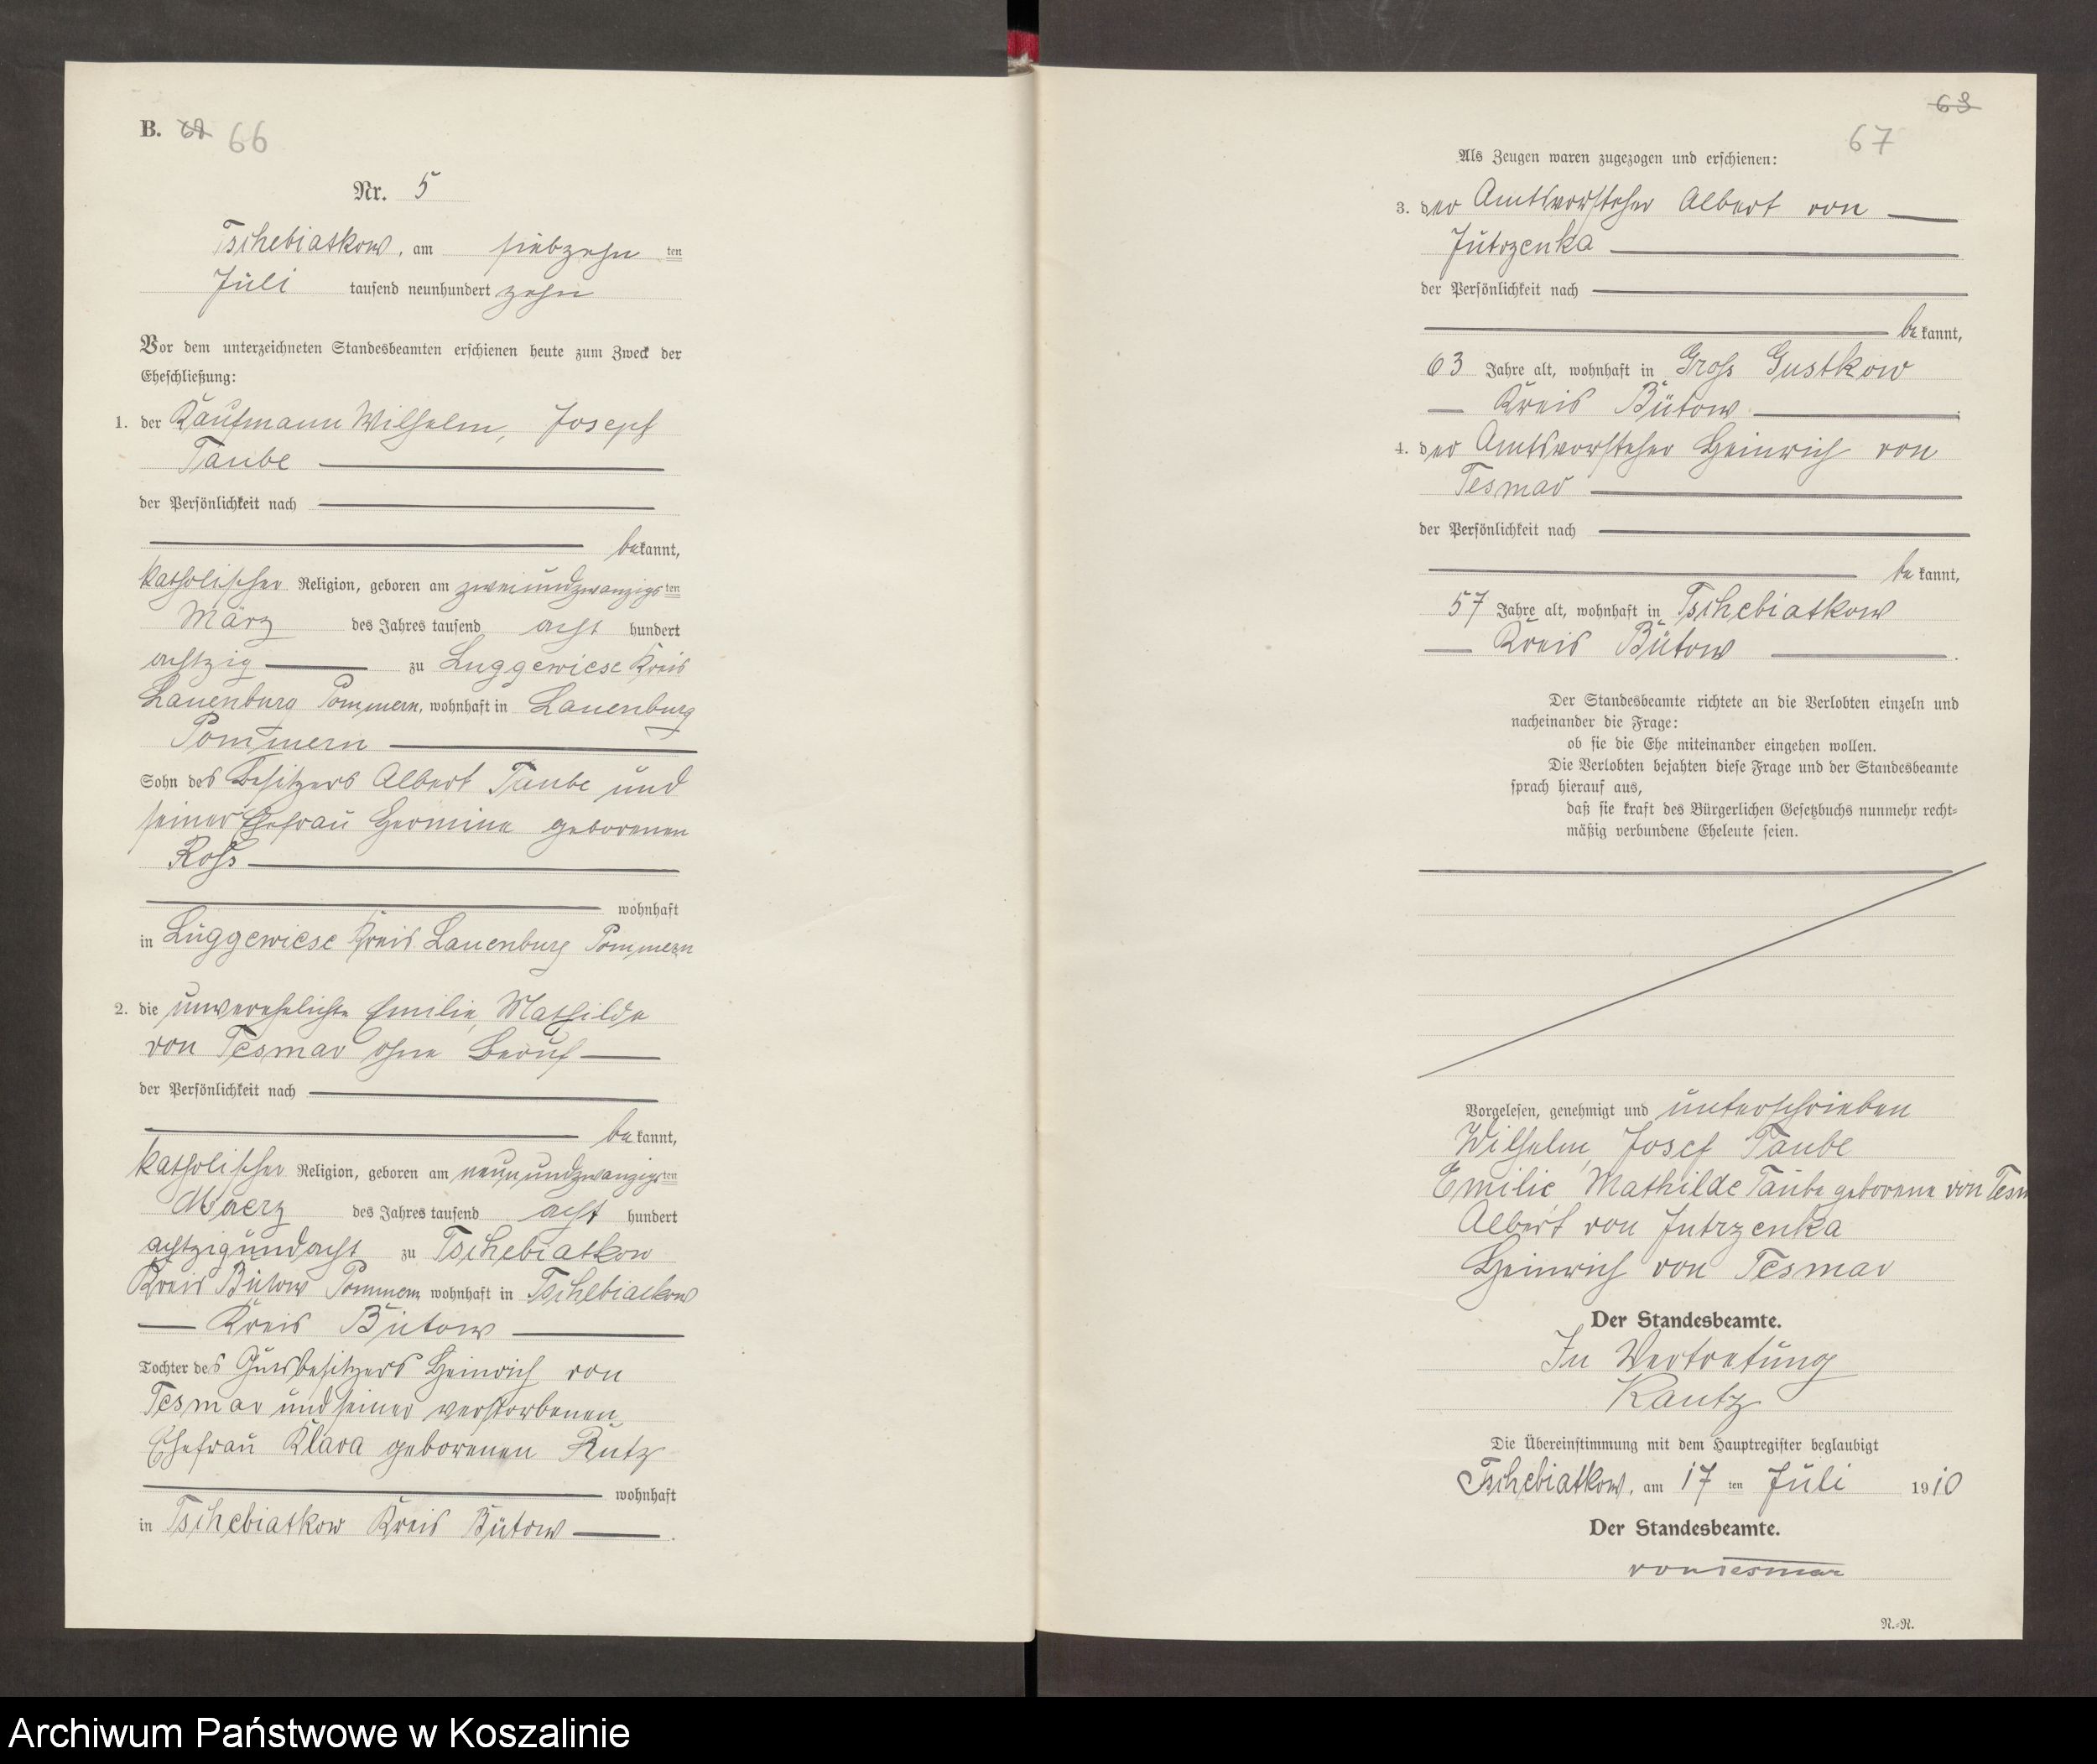 B. 66
Nr. 5
Tschebiatkow, am siebzehn ten
Juli tausend neunhundert zehn
Vor dem unterzeichneten Standesbeamten erschienen heute zum Zweck der
Eheschließung:
1. der Kaufmann Wilhelm, Joseph
Taube
der Persönlichkeit nach
bekannt,
katholischer Religion, geboren am zweiundzwanzigsten
März des Jahres tausend acht hundert
achtzig zu Luggewiese Kreis
Lauenburg Pommern, wohnhaft in Lauenburg
Pommern
Sohn des Besitzers Albert Taube und
seiner Ehefrau Hermine geborenen
Ross
wohnhaft
in Luggewiese Kreis Lauenburg Pommern
2. die unverehelichte Emilie, Mathilde
von Tesmar ohne Beruf
der Persönlichkeit nach
bekannt,
katholischer Religion, geboren am neunundzwanzigsten
Maerz des Jahres tausend acht hundert
achtzigundacht zu Tschebiatkow
Kreis Bütow Pommern wohnhaft in Tschebiatkow
Kreis Bütow
Tochter des Gutsbesitzers Heinrich von
Tesmar und seiner verstorbenen
Ehefrau Klara geborenen Rutz
wohnhaft
in Tschebiatkow Kreis Bütow.
63
67
Als Zeugen waren zugezogen und erschienen:
3. der Amtsvorsteher Albert von
Jutrzenka
der Persönlichkeit nach
bekannt,
63 Jahre alt, wohnhaft in Gross Gustkow
Kreis Bütow;
4. der Amtsvorsteher Heinrich von
Tesmar
der Persönlichkeit nach
bekannt,
57 Jahre alt, wohnhaft in Tschebiatkow
Kreis Bütow.
Der Standesbeamte richtete an die Verlobten einzeln und
nacheinander die Frage:
ob sie die Ehe miteinander eingehen wollen.
Die Verlobten bejahten diese Frage und der Standesbeamte
sprach hierauf aus,
daß sie kraft des Bürgerlichen Gesetzbuchs nunmehr recht-
mäßig verbundene Eheleute seien.
Vorgelesen, genehmigt und unterschrieben
Wilhelm, Josef Taube
Emilie Mathilde Taube geborene von Tesm
Albert von Jutrzenka
Heinrich von Tesmar
Der Standesbeamte.
In Vertretung
Kautz
Die Übereinstimmung mit dem Hauptregister beglaubigt
Tschebiatkow, am 17 ten Juli 1910
Der Standesbeamte.
von Tesmar
N.-N.
Archiwum Państwowe w Koszalinie